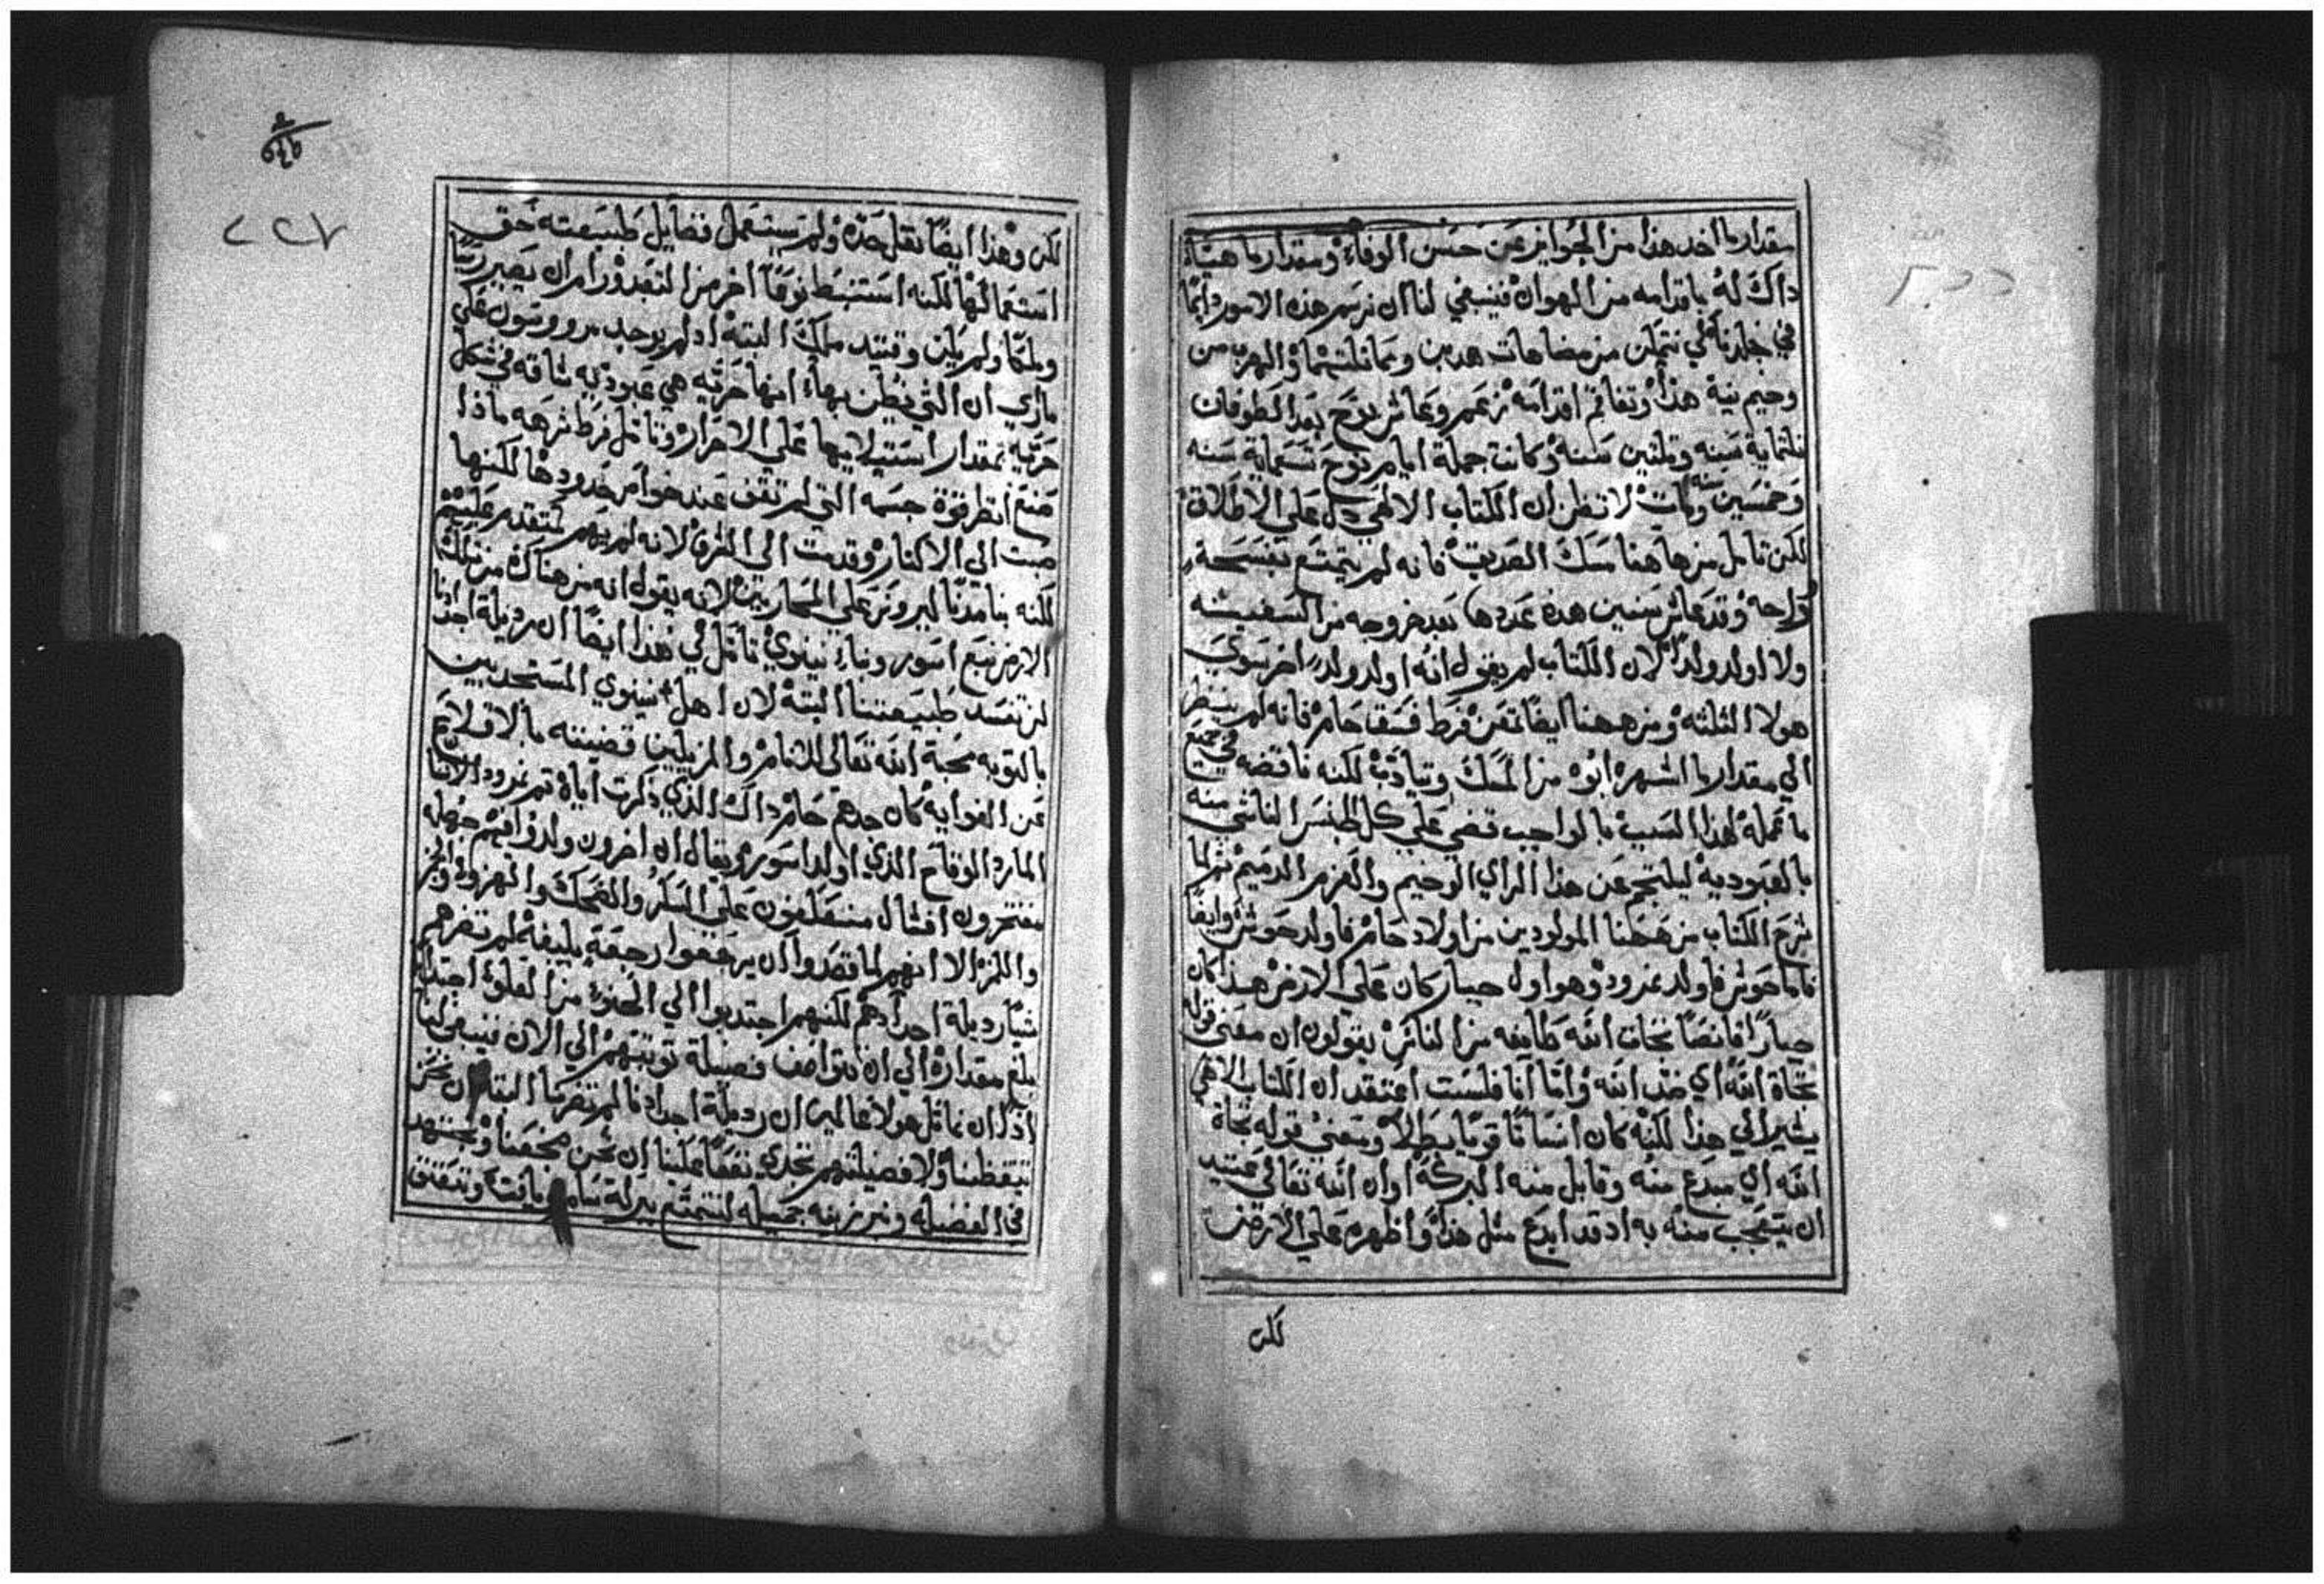 مقدار ما اخد هذا من الجوايز عن حسن الوفاء ومقدار ما هياه
داك له باقدامه من الهوان فينبغي لنا ان نرسم هذه الامور دايمًا
في خلدنا كي نتمكن من مضاهات هدين ومماثلتهما والهرب من
وحيم نية هذا وتفاقم اقدامه زعم وعاش نوح بعد الطوفان
ثلثماية سنه وثلثين سنه وكانت جملة ايام نوح تسعماية سنه
وخمسين سنه ومات لا تظن ان الكتاب الالهي دل على الاطلاق
لكن تامل من هاهنا مسك الصديق فانه لم يتمتع بفسحة
وراحه وقد عاش سنين هده عددها بعد خروجه من السفينه
ولا اولد ولداً لان الكتاب لم يقول انه اولد ولداً اخر سوى
هولا الثلثه ومن ههنا ايضًا تمعن فرط فسق حام فانه لم ينظر
الي مقدار ما اشهره ابوه من المسك وتيادب لكنه ناقضه في جميع
ما عمله لهذا السبب بالواجب قضي على كل الجنس الناشي منه
بالعبوديه ليلتجم عن هذا الراي الوخيم والعزم الدميم ثم لما
شرح الكتاب من ههنا المولودين من اولاد حام فاولد حوش وايضًا
فاما حوش فاولد نمرود وهو اول جبار كان على الارض هذا كان
جبارًا قانصًا تجات الله طايفه من الناس يقولون ان معنى قوله
تجاة الله اي ضد الله واما انا فلست اعتقد ان الكتاب الالاهي
يشير الي هذا لكنه كان انسانًا قويًا بطلاً ومعنى قوله تجاة
الله اي مبدع منه وقابل منه البركة او ان الله تعالى عتيد
ان يتعجب منه به اد قد ابدع مثل هذا واظهره على الارض
لكن
٢٢٧
لكن وهذا ايضًا نقل جده ولم يستعمل فضايل طبيعته حق
استعمالها لكنه استنبط نوعًا اخر من التعبد ورام ان يصير ريسًا
وملكًا ولم يكن وقتيد ملك البتة اد لم يوجد مرووسون على
ما اري ان التي يظن بها انها حرية هي عبوديه شاقه في شكل
حرية بمقدار استيلايها على الاحرار وتامل فرط شرهه ماذا
صنع انظر قوة جسمه التي لم تقف عند خواص حدودها لكنها
صبت الى الاكتار وقديت الى الشره لانه لم يهم لمتقدم عليهم
لكنه بنا مدنًا ليروس على المحاربين لانه يقول انه من هناك من تلك
الارض نبع اسور وبنا نينوى تامل في هذا ايضًا ان رديلة اجدادنا
لن تفسد طبيعتنا البتة لان اهل نينوي المستجدبين
بالتوبه محبة الله تعالى للانام والمزيلين قضيته بالاقلاع
عن الغوايه كان جدهم حام داك الذي ذكرت اياه ثم نمرود الانسان
المارد الوقاح الذي اولد اسور ويقال ان اخرون ولدوا فيهم جهله
مفتخرون افشال منعكفون على السكر والضحك والهزوا والبز
واللمز الا انهم لما قصدوا ان يرجعوا رجعة بليغة لم تضرهم
شيا رديلة اجدادهم لكنهم اجتدبوا الي الحنوة من العلوة اجتدابًا
بلغ مقداره الي ان يتواصف فضيلة توبتهم الي الان فينبغي لنا
اذًا ان نماثل هولا عالمين ان رديلة اجدادنا لم تضرنا البتا ان نحن
تيقظنا ولا فضيلتهم تجدي نفعًا علينا ان نحن ضجعنا ونجتهد
في الفضيله ونبرز نيه جميله لنتمتع ببركة سام ويافت ونتعتق